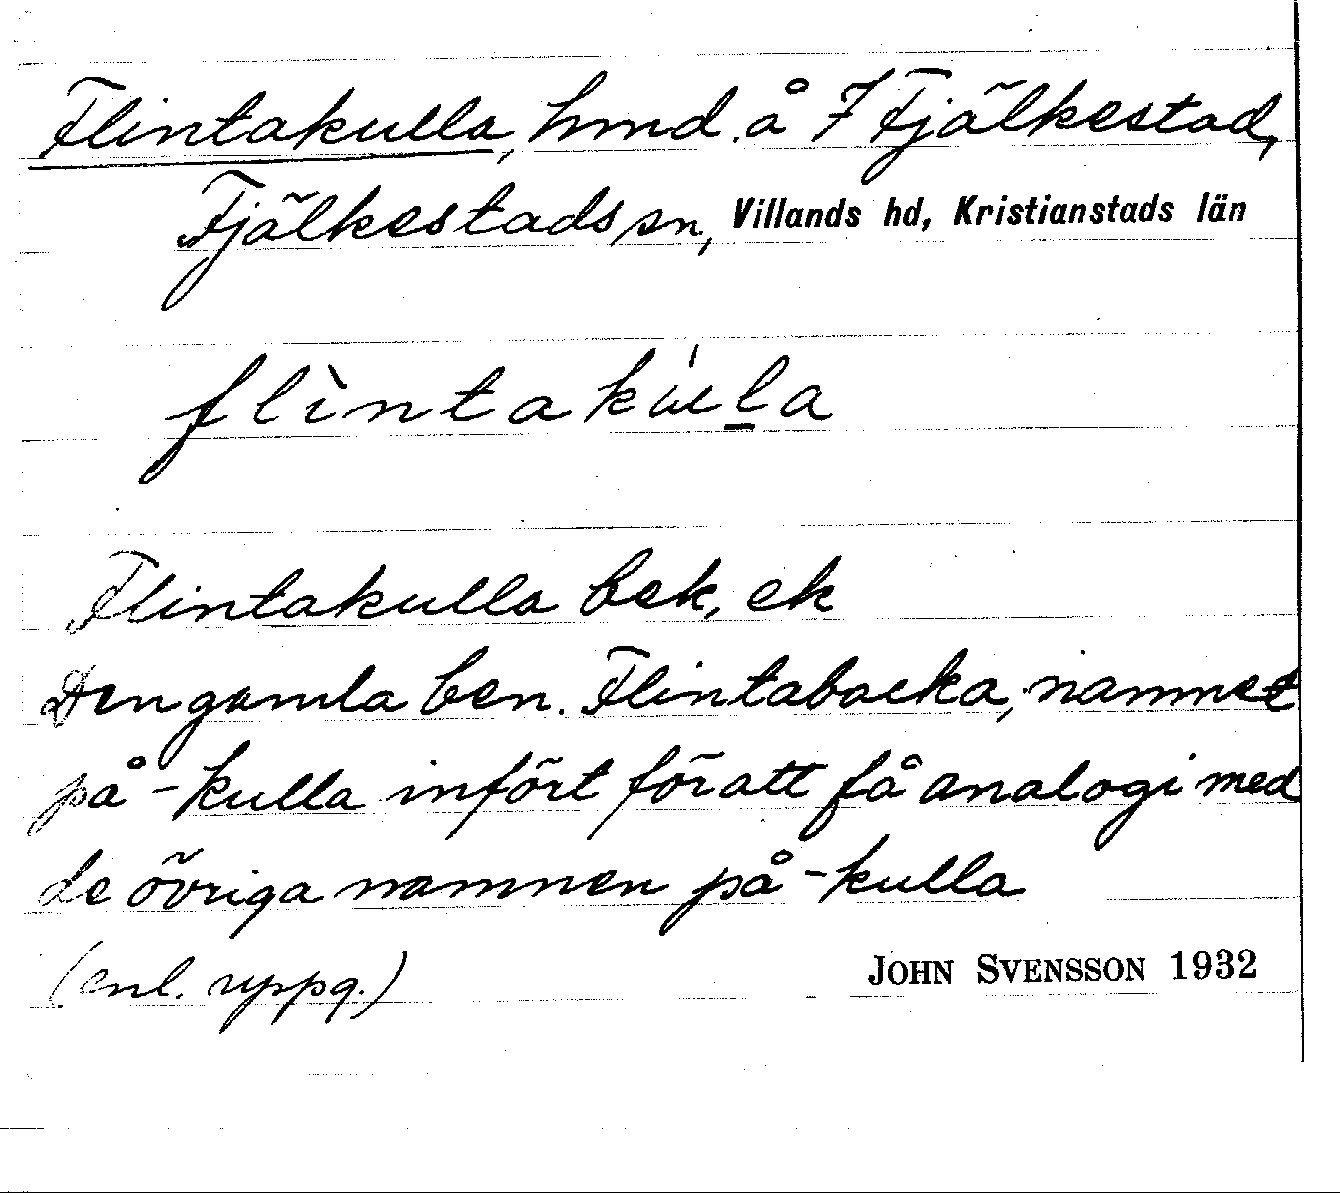 Flintakulla, hmd. å 7 Fjälkestad,
Fjälkestads sn, Villands hd, Kristianstads län
flìntakúla
Flintakulla bek, ek
Den gamla ben. Flintabacka, namnet
på -kulla infört för att få analogi med
de övriga namnen på -kulla
(enl. uppg.)
JOHN SVENSSON 1932